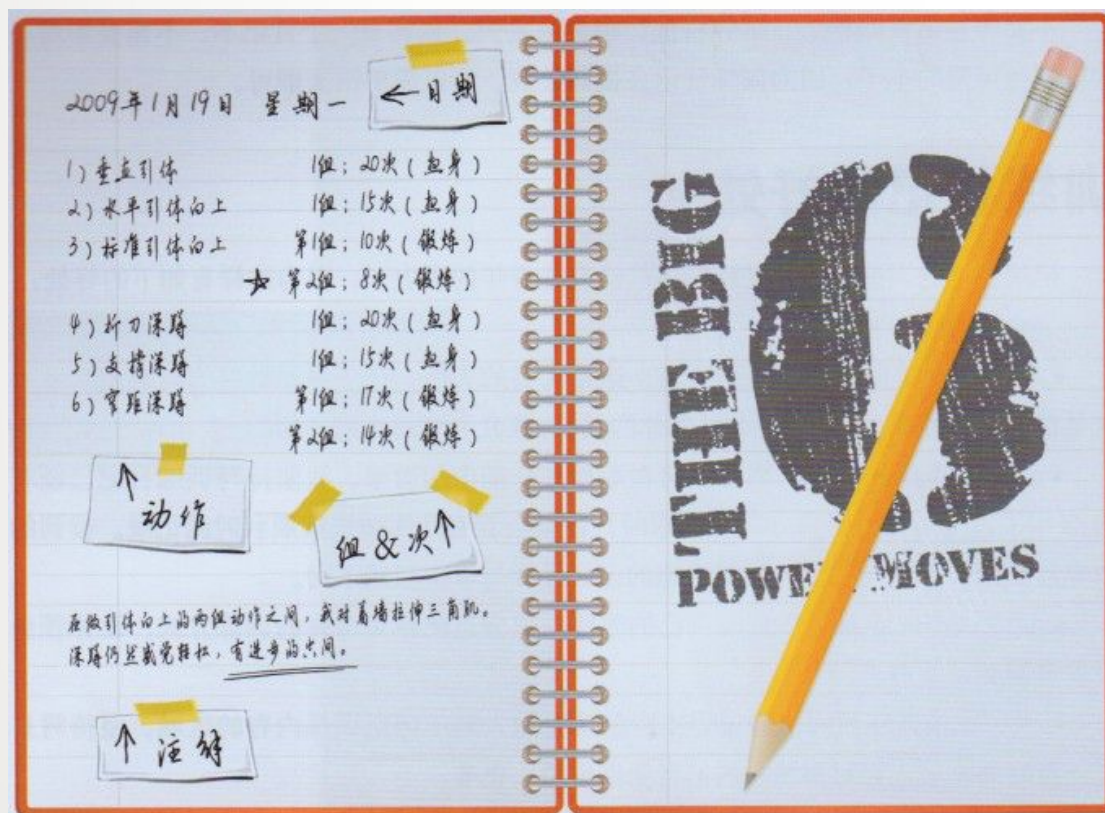 2009年1月19日 星期一
←日期
1) 垂直引体 1组; 20次 (热身)
2) 水平引体向上 1组; 15次 (热身)
3) 标准引体向上 第1组; 10次 (锻炼)
☆ 第2组; 8次 (锻炼)
4) 折刀深蹲 1组; 20次 (热身)
5) 支撑深蹲 1组; 15次 (热身)
6) 窄距深蹲 第1组; 17次 (锻炼)
第2组; 14次 (锻炼)
↑动作
组&次↑
在做引体向上的两组动作之间,我对着墙拉伸三角肌。
深蹲仍然感觉轻松,有进步的空间。
↑注解
THE BIG
6
POWER MOVES